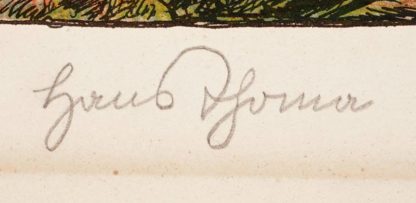 Hans Thoma